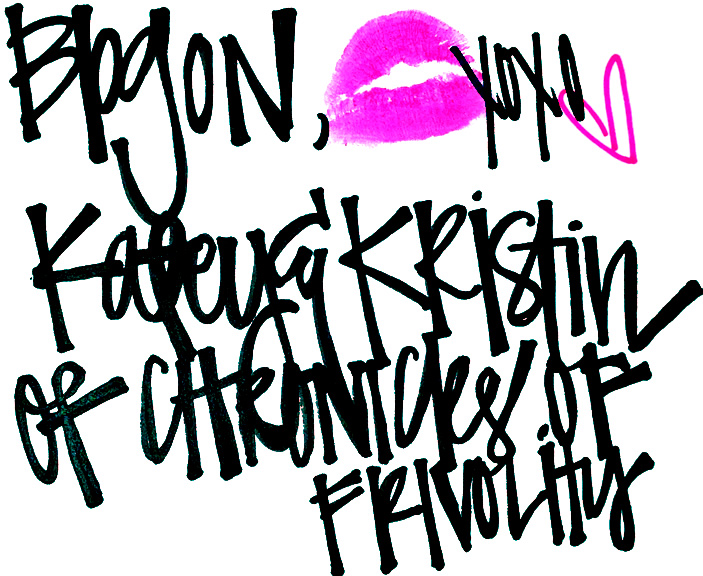 Blog on, xoxo
& Kristin
of Chronicles of
Frivolity